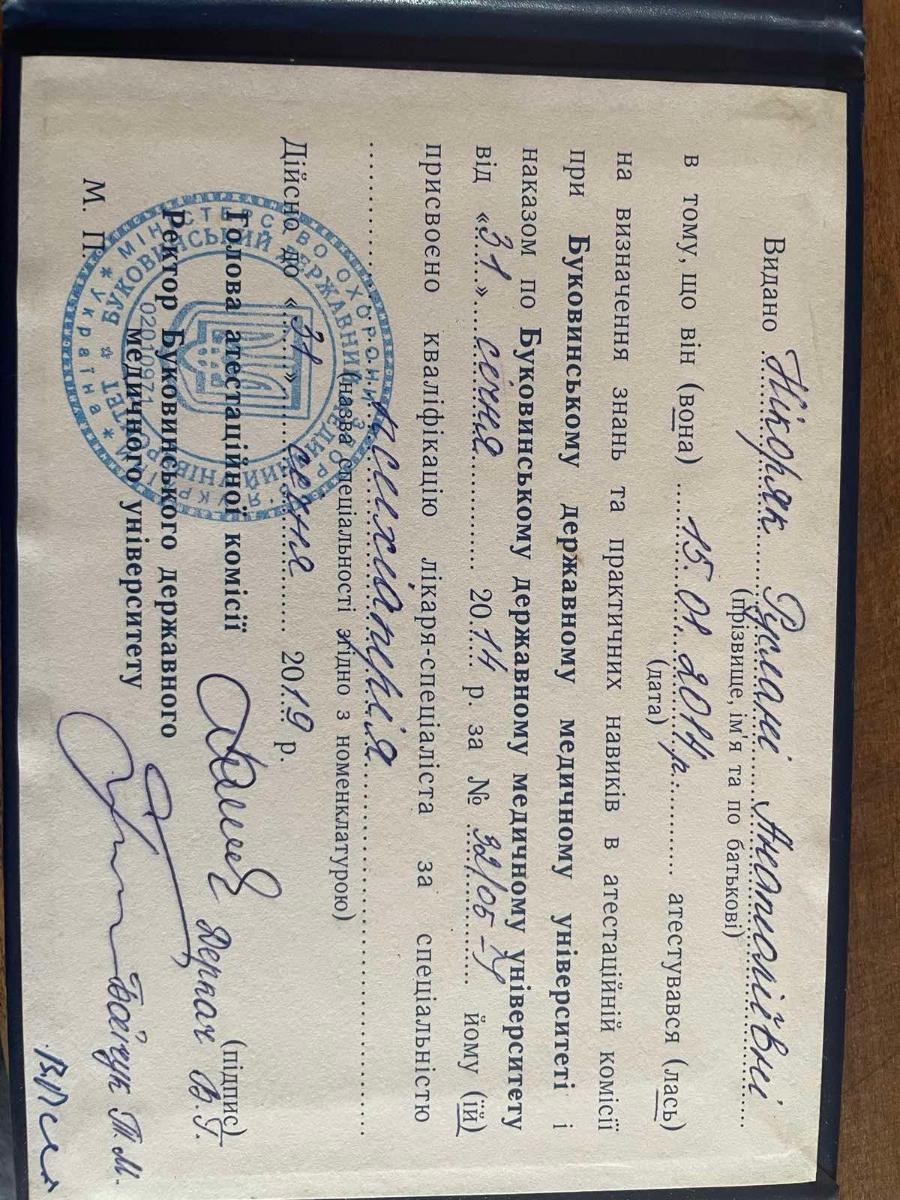 Видано Нікоряк Руслані Анатоліївні
(прізвище, ім'я та по батькові)
в тому, що він (вона) 15.01.2014р. атестувався (лась)
(дата)
на визначення знань та практичних навиків в атестаційній комісії
при Буковинському державному медичному університеті і
наказом по Буковинському державному медичному університету
від «31» січня 2014 р. за № 32/05- йому (їй)
присвоєно кваліфікацію лікаря-спеціаліста за спеціальністю
психіатрія
(назва спеціальності згідно з номенклатурою)
Дійсно до «31» січня 2019 р.
Голова атестаційної комісії
(підпис)
Дерпач В.Г.
Ректор Буковинського державного
медичного університету
Бойчук Т.М.
М. П.
* МІНІСТЕРСТВО ОХОРОНИ ЗДОРОВ'Я УКРАЇНИ *
Україна
БУКОВИНСЬКИЙ ДЕРЖАВНИЙ МЕДИЧНИЙ УНІВЕРСИТЕТ
02010971